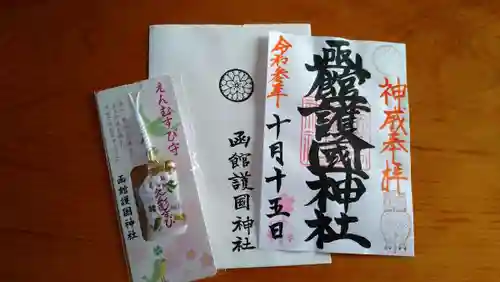 えんむすび守
えんむすび
函館護国神社
函館護国神社
令和参年
十月十五日
函館護國神社
神威奉拝